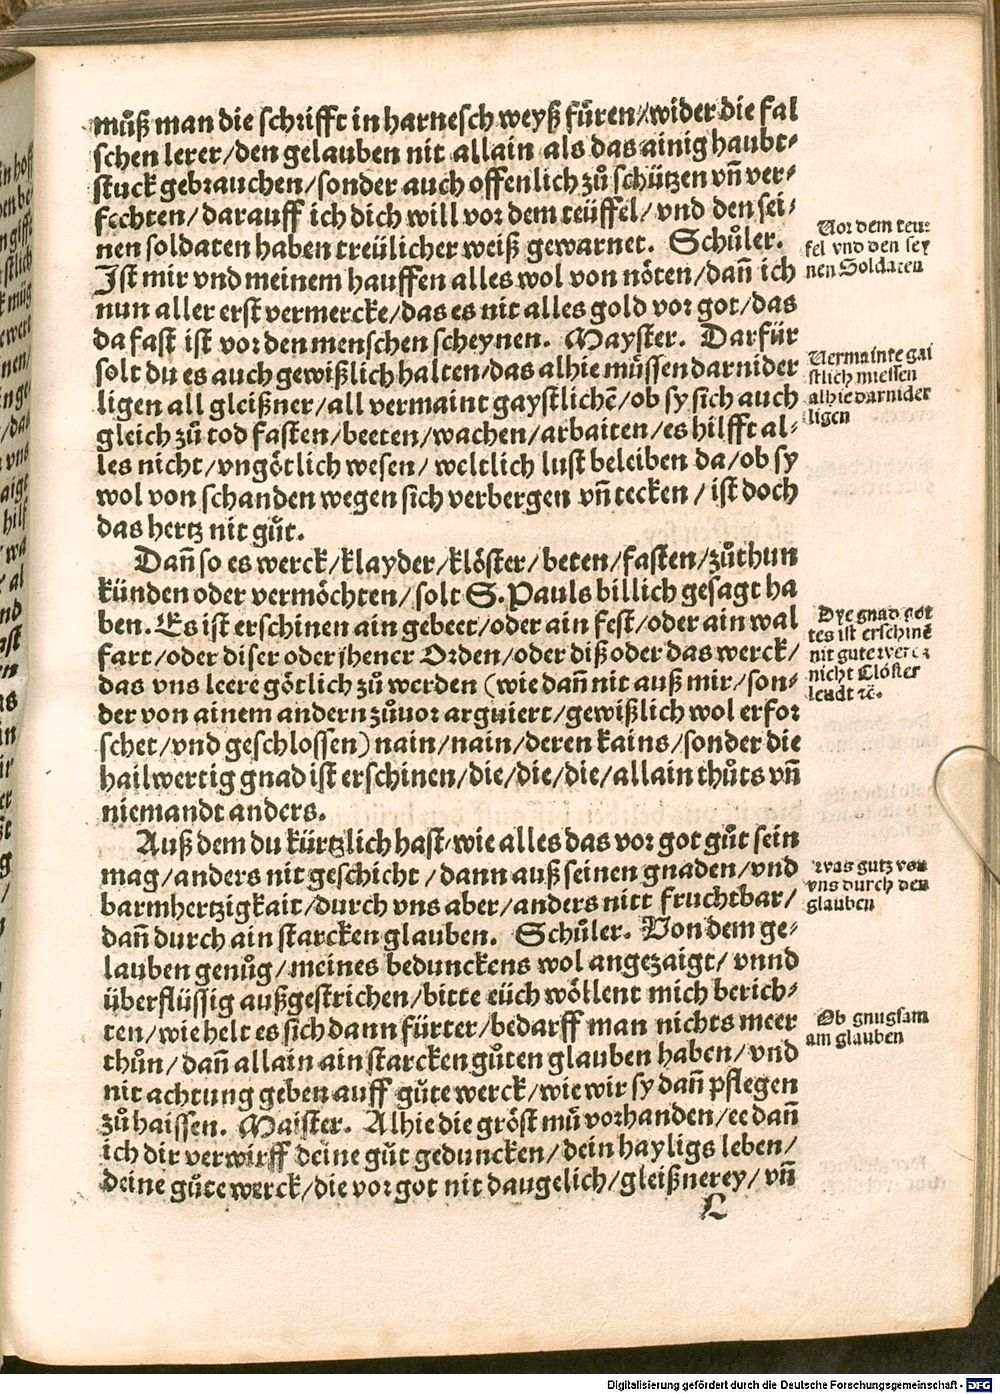 muͦß man die schrifft in harnesch weyß fuͤren/wider die fal
schen lerer/den gelauben nit allain als das ainig haubt⸗
stuck gebrauchen/sonder auch offenlich zuͦ schützen vñ ver⸗
fechten/darauff ich dich will vor dem teüffel/vnd den sei⸗
nen soldaten haben treülicher weiß gewarnet. Schuͦler.
Ist mir vnd meinem hauffen alles wol von noͤten/dañ ich
nun aller erst vermercke/das es nit alles gold vor got/das
da fast ist vor den menschen scheynen. Mayster. Darfür
solt du es auch gewißlich halten/das alhie muͤssen darnider
ligen all gleißner/all vermaint gaystlichē/ob sy sich auch
gleich zuͦ tod fasten/beeten/wachen/arbaiten/es hilfft al⸗
les nicht/vngoͤtlich wesen/weltlich lust beleiben da/ob sy
wol von schanden wegen sich verbergen vñ tecken/ist doch
das hertz nit guͦt.
Dañ so es werck/klayder/kloͤster/beten/fasten/zuͦthun
künden oder vermoͤchten/solt S. Pauls billich gesagt ha
ben. Es ist erschinen ain gebeet/oder ain fest/oder ain wal
fart/oder diser oder jhener Orden/oder diß oder das werck/
das vns leere goͤtlich zuͦ werden (wie dañ nit auß mir/son⸗
der von ainem andern zuͦuor arguiert/gewißlich wol erfor
schet/vnd geschlossen) nain/nain/deren kains/sonder die
hailwertig gnad ist erschinen/die/die/die/allain thuͦts vñ
niemandt anders.
Auß dem du kürtzlich hast/wie alles das vor got guͦt sein
mag/anders nit geschicht/dann auß seinen gnaden/vnd
barmhertzigkait/durch vns aber/anders nitt fruchtbar/
dañ durch ain starcken glauben. Schuͦler. Von dem ge⸗
lauben genuͦg/meines beduncken​s wol angezaigt/vnnd
überflüssig außgestrichen/bitte eüch woͤllent mich berich⸗
ten/wie helt es sich dann fürter/bedarff man nichts meer
thuͦn/dañ allain ain starcken guͦten glauben haben/vnd
nit achtung geben auff guͦte werck/wie wir sy dañ pflegen
zuͦ haissen. Maister. Alhie die groͤst muͤ vorhanden/ee dañ
ich dir verwirff deine guͦt geduncken/dein hayligs leben/
deine guͦte werck/die vor got nit daugelich/gleißnerey/vñ
L
Vor dem teu⸗
fel vnd den sey
nen Soldaten
Vermainte gai
stlich muessen
alhie darnider
ligen
Dye gnad got
tes ist erschinē
nit gute werck
nicht Cloͤster
leudt ꝛc.
was gutz von
vns durch den
glauben
Ob gnugsam
am glauben
Digitalisierung gefördert durch die Deutsche Forschungsgemeinschaft - DFG